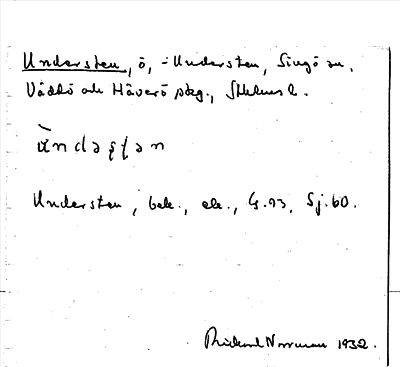 Understen, ö, -Understen, Singö sn,
Väddö och Häverö skg., Sthlms l.
ùndəʂʈən
Understen, bek., ek., G.93, Sj.60.
Rickard Norrman 1932.